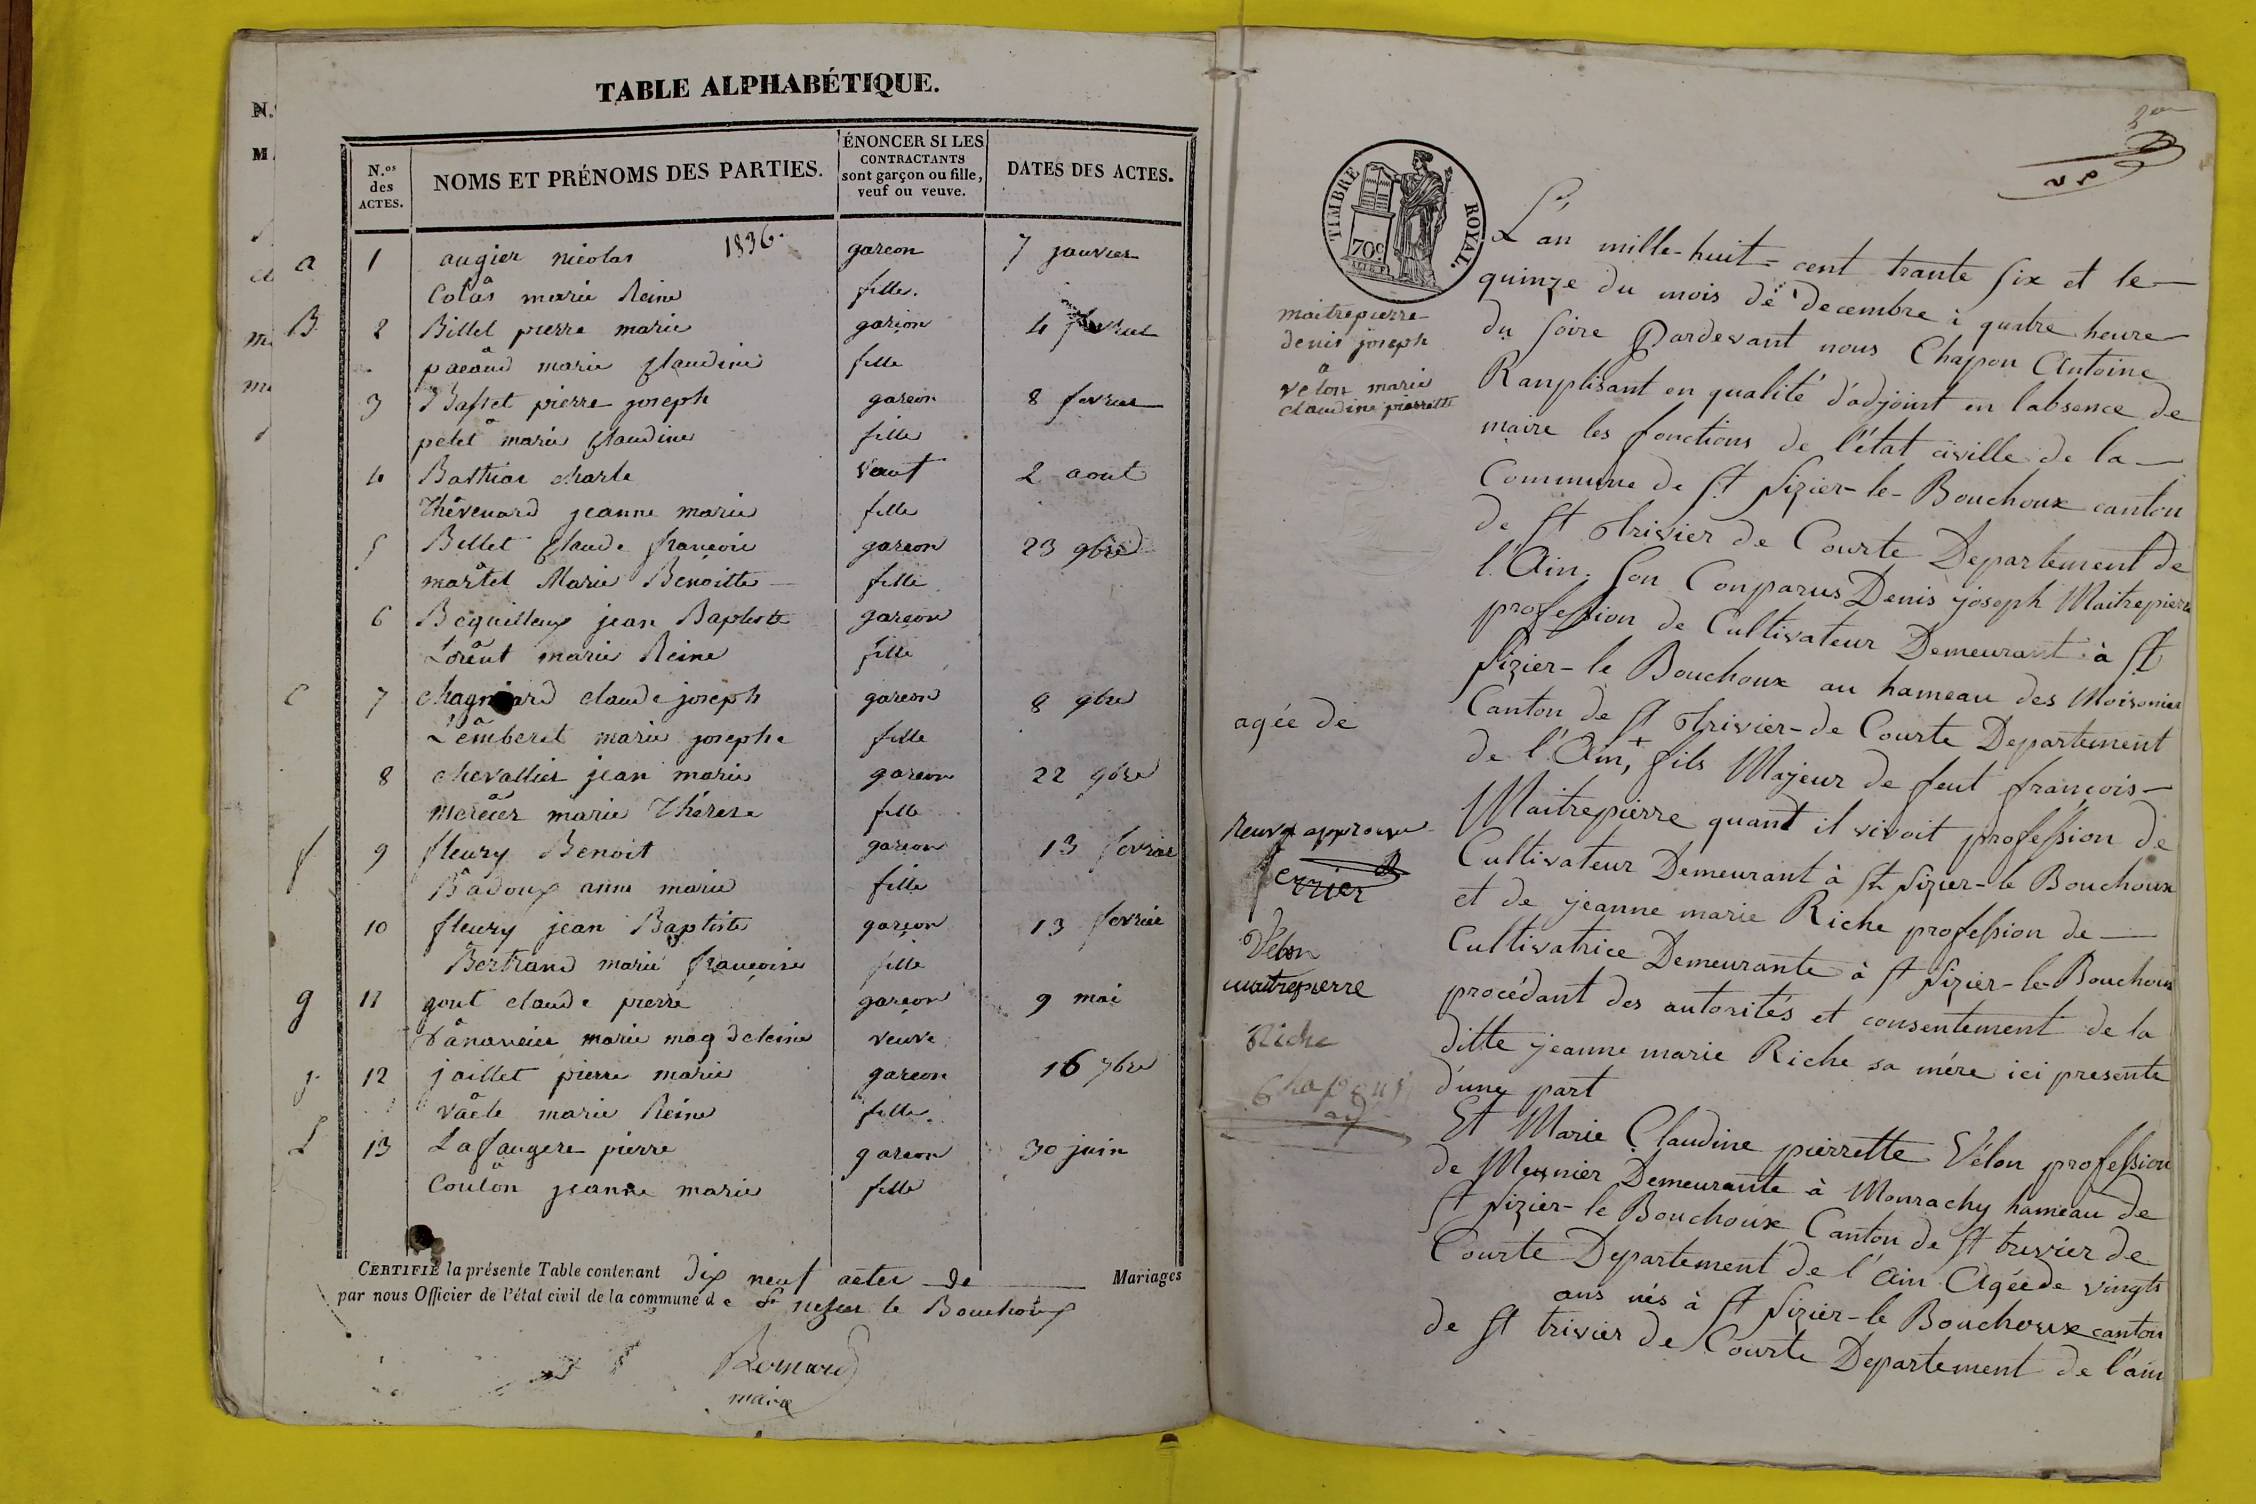 TABLE ALPHABÉTIQUE.
N.os des ACTES.
NOMS ET PRÉNOMS DES PARTIES.
ÉNONCER SI LES CONTRACTANTS sont garçon ou fille, veuf ou veuve.
DATES DES ACTES.
1836.
a 1 augier nicolas garcon 7 janvier
Colas marie Reine fille.
B 2 Billet pierre marie garcon 4 fevrier
marie Claudine fille
3 Baffet pierre joseph garcon 8 fevrier
petet marie Claudine fille
4 Bathias charle veuf 2 aout
Thévenard jeanne marie fille
5 Billet Claude francois garcon 23 9bre
martel Marie Benoitte fille
6 Bequilleux jean Baptiste garçon
Lorent marie Reine fille
C 7 chagniard claude joseph garcon 8 9bre
Lemberet marie josephe fille
8 chevallier jean marie garcon 22 9bre
mercier marie Thérese fille
f 9 fleury Benoit garcon 13 fevrier
Badoux anne marie fille
10 fleury jean Baptiste garçon 13 fevrier
Bertrand marie françoise fille
g 11 gout claude pierre garcon 9 mai
marie magdeleine veuve
j 12 jaillet pierre marie garcon 16 7bre
vacle marie Reine fille
L 13 Lafaugere pierre garcon 30 juin
Coulon jeanne marie fille
CERTIFIÉ la présente Table contenant dix neuf actes de Mariages
par nous Officier de l'état civil de la commune de St nizier le Bouchoux
Bernard
maire
2me
TIMBRE ROYAL.
70c
maitrepierre
denis joseph
a
vélon marie
claudine pierrette
L'an mille-huit-cent trante six et le
quinze du mois de decembre à quatre heure
du soire Pardevant nous Chapon Antoine
Ranplisant en qualité d'adjoint en l'absence de
maire les fonctions de l'état civille de la
Commune de St Nizier-le-Bouchoux canton
de St Trivier de Courte Departement de
l'Ain. Son Conparus Denis joseph Maitrepierre
profession de Cultivateur Demeurant à St
Nizier-le Bouchoux au hameau des Moisonier
Canton de St Trivier-de Courte Departement
agée de
de l'Ain, + fils Majeur de feut françois
Maitrepierre quant il vivoit profession de
Cultivateur Demeurant à St Nizier-le Bouchoux
et de jeanne marie Riche profession de
Cultivatrice Demeurante à St Nizier-le-Bouchoux
procédant des autorités et consentement de la
ditte jeanne marie Riche sa mére ici presente
d'une part
Renvoi approuvé
ferrier
Vélon
maitrepierre
Riche
Chapon
adj
Et Marie Claudine pierrette Vélon profession
de Meunier Demeurante à Monrachy hameau de
St Nizier-le Bouchoux Canton de St trivier de
Courte Departement de l'Ain Agée de vingts
ans nés à St Nizier-le Bouchoux canton
de St trivier de Courte Departement de l'ain